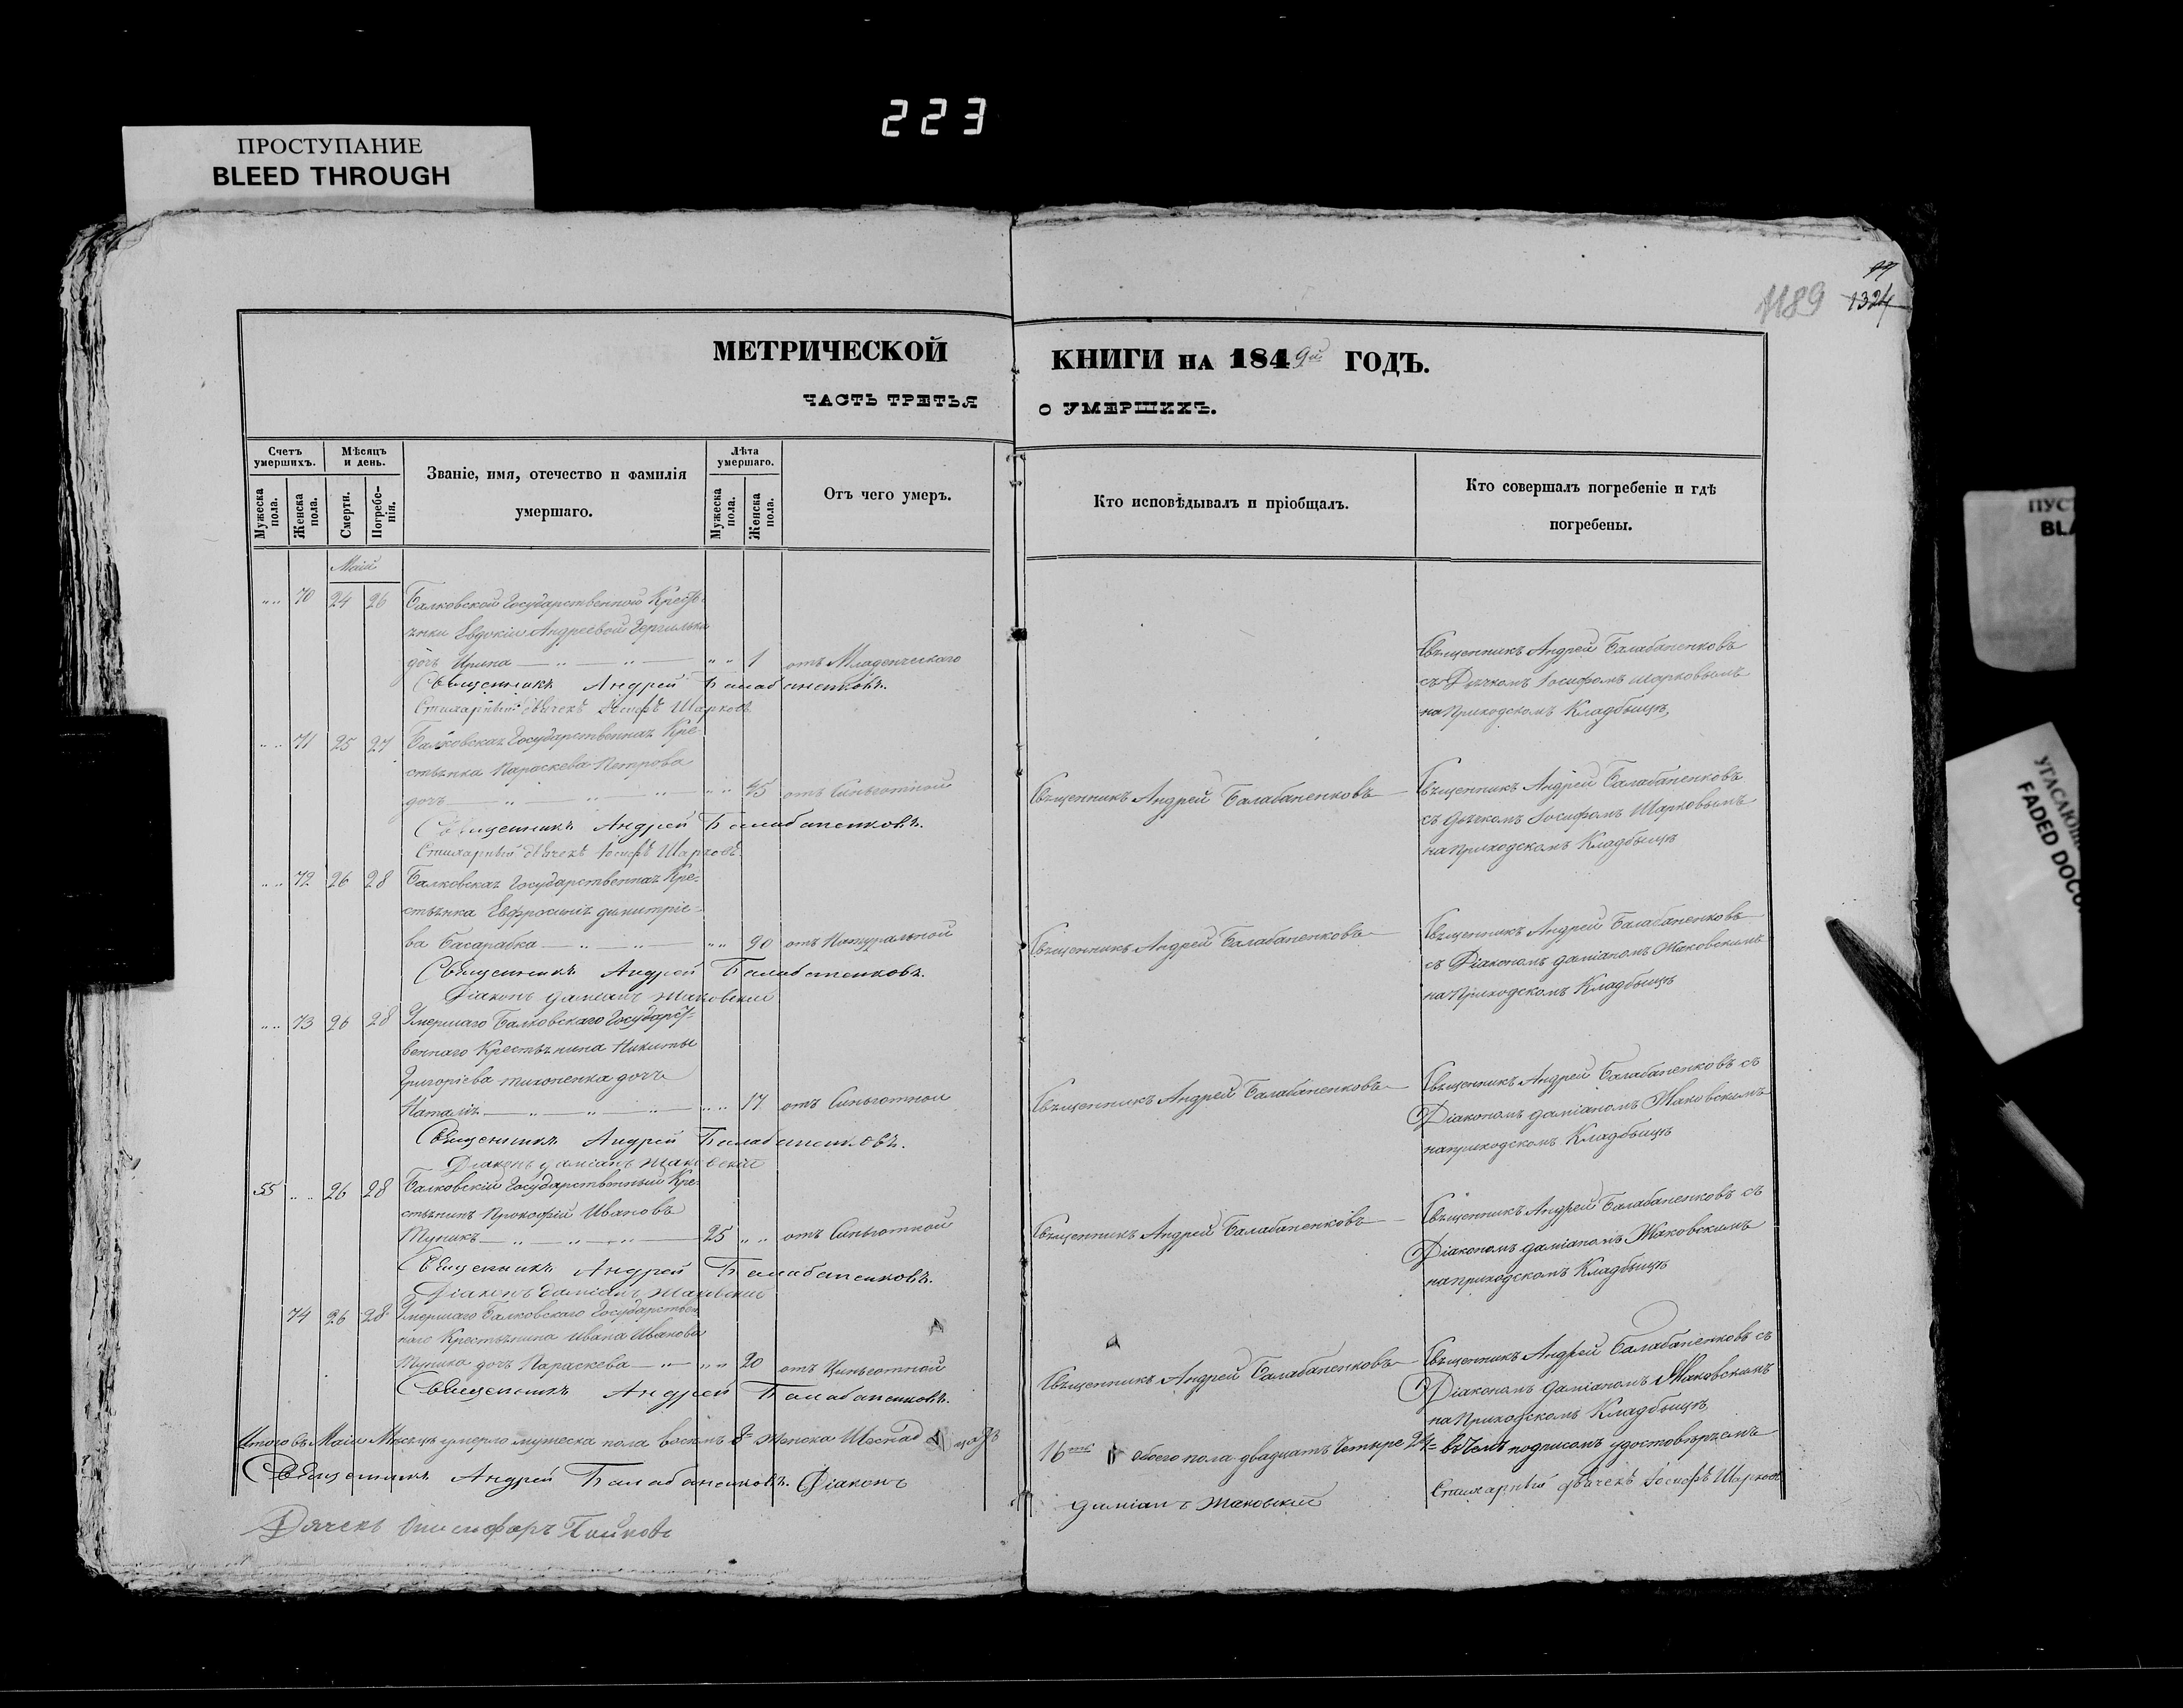 223
ПРОСТУПАНИЕ
BLEED THROUGH
1189
1324
МЕТРИЧЕСКОЙ КНИГИ НА 1849й ГОДЪ.
ЧАСТЬ ТРЕТЬЯ О УМЕРШИХЪ.
Счетъ умершихъ.
Мужеска пола.
Женска пола.
Мѣсяцъ и день.
Смерти.
Погребенія.
Званіе, имя, отечество и фамилія
умершаго.
Лѣта умершаго.
Мужеска пола.
Женска пола.
Отъ чего умеръ.
Кто исповѣдывалъ и пріобщалъ.
Кто совершалъ погребеніе и гдѣ
погребены.
Маій
70 24 26 Балковской Государственной Крестья-
нки Евдокіи Андреевой
дочь Ирина 1 отъ Младенческаго
Священникъ Андрей Балабаненковъ
съ Дьячкомъ Іосифомъ Шарковымъ
на Приходскомъ Кладбыщѣ
Священникъ Андрей Балабаненковъ.
Стихарный дьячекъ Іосифъ Шарковъ
71 25 27 Балковская Государственная Кре-
стьянка Параскева Петрова
дочь 45 отъ Синьготной
Священникъ Андрей Балабаненковъ
Священникъ Андрей Балабаненковъ
съ Дьячкомъ Іосифомъ Шарковымъ
на приходскомъ Кладбыщѣ
Священникъ Андрей Балабаненковъ.
Стихарный дьячекъ Іосифъ Шарковъ
72 26 28 Балковская Государственная Кре-
стьянка Евфросинія Димитріе-
ва Басарабка 90 отъ Натуральной
Священникъ Андрей Балабаненковъ
Священникъ Андрей Балабаненковъ
съ Діакономъ Даміаномъ Маковскимъ
на Приходскомъ Кладбыщѣ
Священникъ Андрей Балабаненковъ.
Діаконъ Даміанъ Маковскій
73 26 28 Умершаго Балковскаго Государст-
веннаго Крестьянина Никиты
Григоріева Тихоненка дочь
Наталія 17 отъ Синьготной
Священникъ Андрей Балабаненковъ
Священникъ Андрей Балабаненковъ съ
Діакономъ Даміаномъ Маковскимъ
на приходскомъ Кладбыщѣ
Священникъ Андрей Балабаненковъ.
Діаконъ Даміанъ Маковскій
55 26 28 Балковскій Государственный Кре-
стьянинъ Прокофій Ивановъ
Муникъ 25 отъ Синьготной
Священникъ Андрей Балабаненковъ
Священникъ Андрей Балабаненковъ съ
Діакономъ Даміаномъ Маковскимъ
на приходскомъ Кладбыщѣ
Священникъ Андрей Балабаненковъ.
Діаконъ Даміанъ Маковскій
74 26 28 Умершаго Балковскаго Государствен-
наго Крестьянина Ивана Иванова
Муника дочь Параскева 20 отъ Циньготной
Священникъ Андрей Балабаненковъ
Священникъ Андрей Балабаненковъ съ
Діакономъ Даміаномъ Маковскимъ
на Приходскомъ Кладбыщѣ
Священникъ Андрей Балабаненковъ.
Итого въ Маіи Мѣсяцѣ умерло мужеска пола восемъ 8= Женска Шеснад 16 обоего пола двадцать Четыре 24= въ Чемъ подписомъ удостовѣряемъ
Священникъ Андрей Балабаненковъ. Діаконъ Даміанъ Маковскій
Стихарный дьячекъ Іосифъ Шарковъ
Дячекъ
ПУС
BLA
FADED DOCU